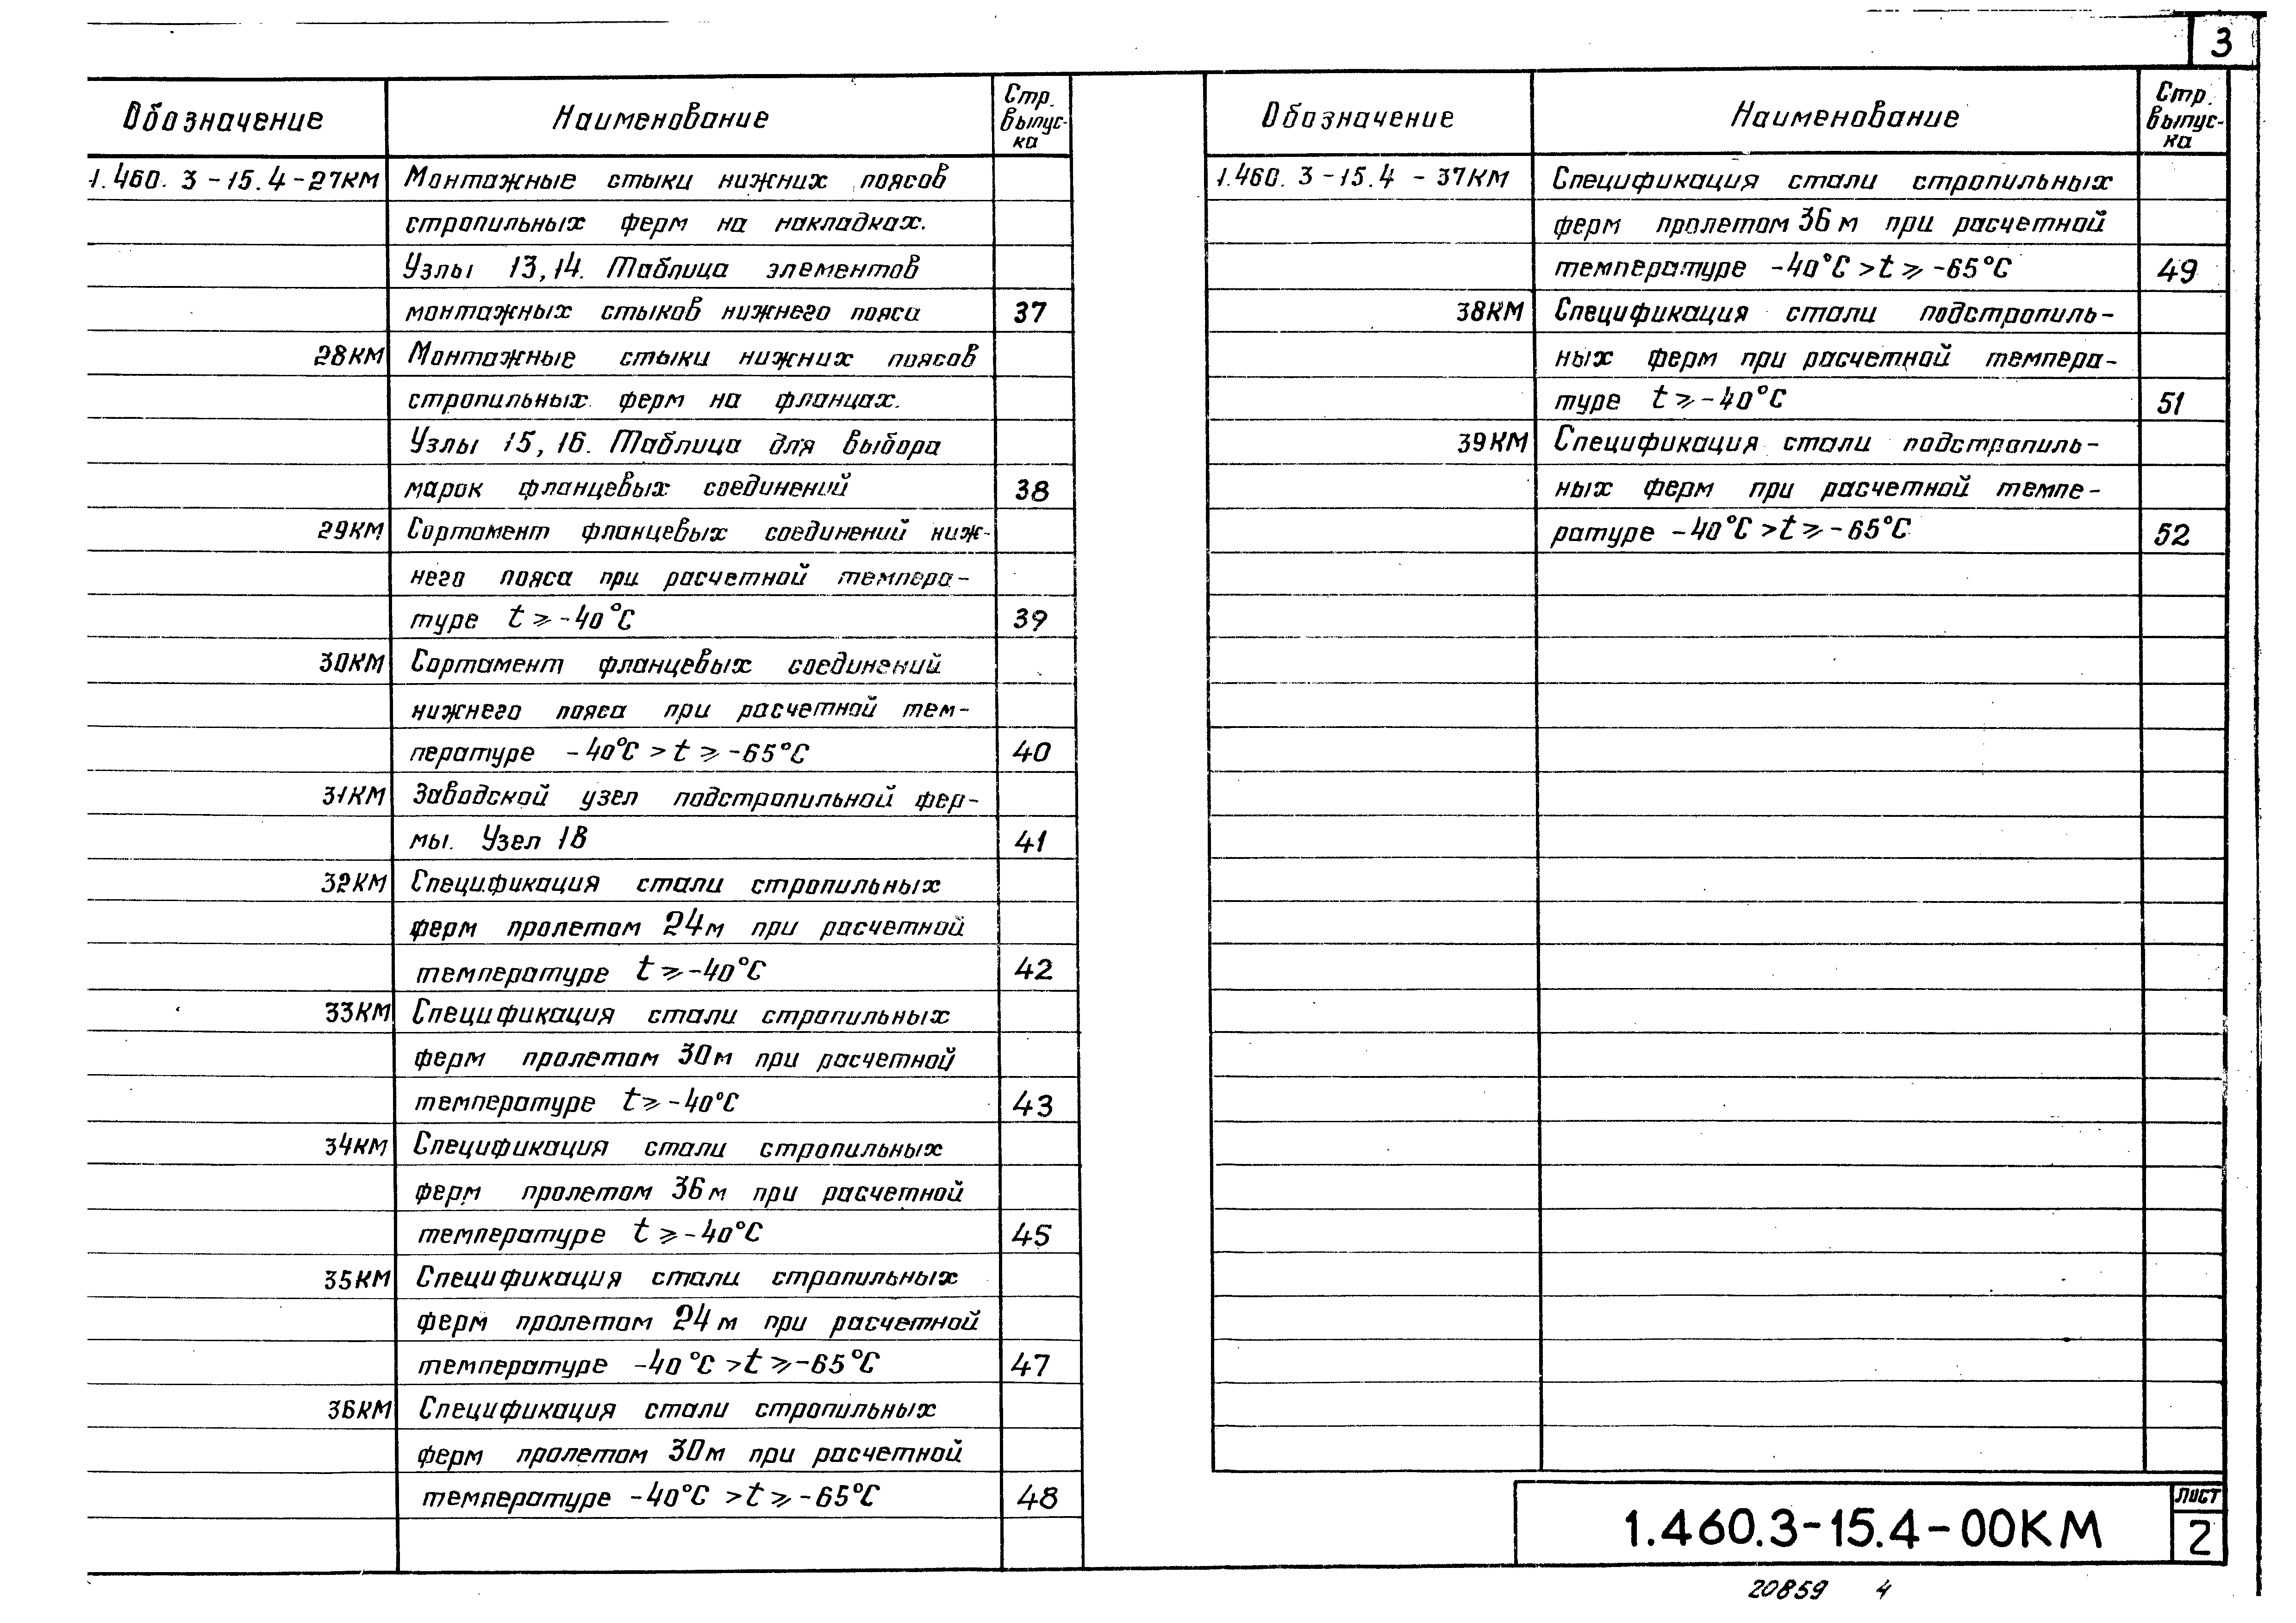 3
Обозначение Наименование Стр. выпус-ка
1.460.3-15.4-27КМ Монтажные стыки нижних поясов
стропильных ферм на накладках.
Узлы 13,14. Таблица элементов
монтажных стыков нижнего пояса 37
28КМ Монтажные стыки нижних поясов
стропильных ферм на фланцах.
Узлы 15, 16. Таблица для выбора
марок фланцевых соединений 38
29КМ Сортамент фланцевых соединений ниж-
него пояса при расчетной темпера-
туре t ⩾ -40°С 39
30КМ Сортамент фланцевых соединений
нижнего пояса при расчетной тем-
пературе -40°С > t ⩾ -65°С 40
31КМ Заводской узел подстропильной фер-
мы. Узел 18 41
32КМ Спецификация стали стропильных
ферм пролетом 24м при расчетной
температуре t ⩾ -40°С 42
33КМ Спецификация стали стропильных
ферм пролетом 30м при расчетной
температуре t ⩾ -40°С 43
34КМ Спецификация стали стропильных
ферм пролетом 36м при расчетной
температуре t ⩾ -40°С 45
35КМ Спецификация стали стропильных
ферм пролетом 24м при расчетной
температуре -40°С > t ⩾ -65°С 47
36КМ Спецификация стали стропильных
ферм пролетом 30м при расчетной
температуре -40°С > t ⩾ -65°С 48
Обозначение Наименование Стр. выпус-ка
1.460.3-15.4-37КМ Спецификация стали стропильных
ферм пролетом 36м при расчетной
температуре -40°С > t ⩾ -65°С 49
38КМ Спецификация стали подстропиль-
ных ферм при расчетной темпера-
туре t ⩾ -40°С 51
39КМ Спецификация стали подстропиль-
ных ферм при расчетной темпе-
ратуре -40°С > t ⩾ -65°С 52
1.460.3-15.4-00КМ
лист
2
20859 4